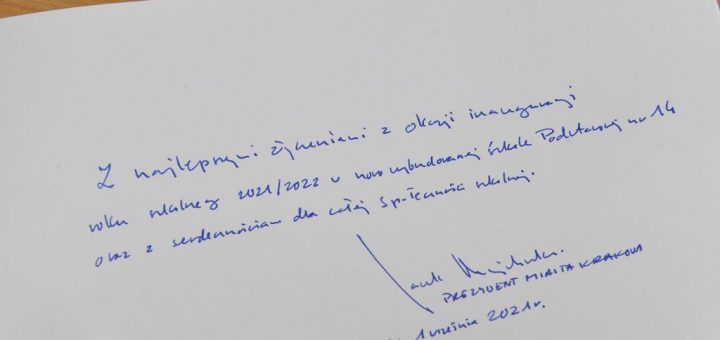 Z najlepszymi życzeniami z okazji inauguracji
roku szkolnego 2021/2022 w nowo wybudowanej Szkole Podstawowej nr 14
oraz z serdecznościami dla całej Społeczności szkolnej.
Jacek Majchrowski
PREZYDENT MIASTA KRAKOWA
1 września 2021 r.